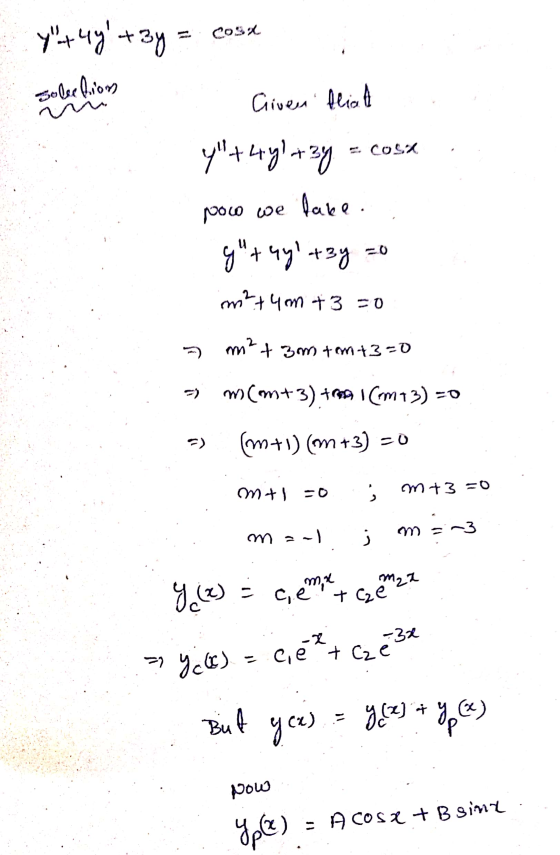 y"+4y'+3y = cosx
solution
Given that
y"+4y'+3y = cosx
now we take.
y"+4y'+3y =0
m²+4m+3 =0
⇒ m²+3m+m+3=0
⇒ m(m+3)+1(m+3)=0
⇒ (m+1)(m+3) =0
m+1 =0 ; m+3 =0
m = -1 ; m = -3
y_c(x) = c₁e^{m₁x} + c₂e^{m₂x}
⇒ y_c(x) = c₁e^{-x} + c₂e^{-3x}
But y(x) = y_c(x) + y_p(x)
now
y_p(x) = A cosx + B sinx